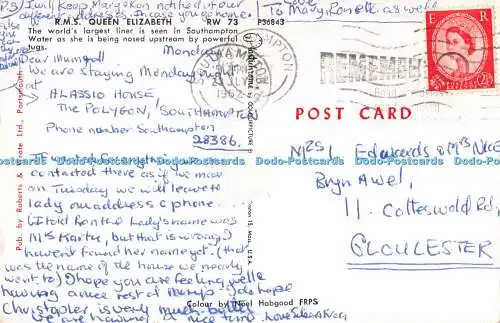 PS) I will keep Mary & Ron notified of our
different addresses. In case you go home
To Mary, Ron etc as well
R.M.S. QUEEN ELIZABETH RW 73 P36843
The world's largest liner is seen in Southampton
Water as she is being nosed upstream by powerful
tugs.
Monday
Dear Mum & all
We are staying Monday night
at ALASSIO HOUSE
THE POLYGON, SOUTHAMPTON
Phone number Southampton
28386.
contacted there as if we move
on Tuesday we will leave the
lady our address & phone...
(I told Ron the Lady's name was
Mrs Karta, but that is wrong, I
haven't found her name yet. (that
was the name of the house we nearly
went to) I hope you are feeling well &
having a nice rest at Marys. I do hope
Christopher is very much better
We are having a nice time. Love
Pub. by Roberts & Wrate Ltd., Portsmouth
NATURAL COLOUR PICTURE
Boston 15, Mass., U.S.A.
Colour by Noel Habgood FRPS
SOUTHAMPTON
1962
REMEMBER
E R
2½D
POST CARD
Mrs L Edwards & Mrs Nice
Bryn Awel,
11. Cotteswold Rd,
GLOUCESTER
Dodo-Postcards Dodo-Postcards Dodo-Postcards Dodo-Postcards